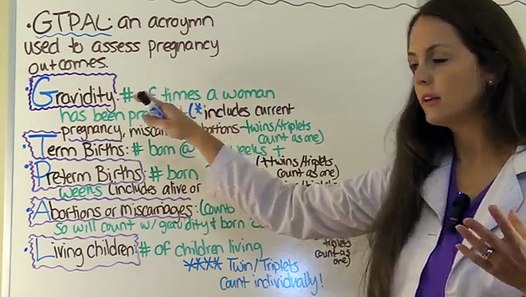 • GTPAL: an acroymn
used to assess pregnancy
outcomes.
• Gravidity: # of times a woman
has been (*includes current
pregnancy, abortions *twins/triplets
count as one)
• Term Births: # born @ weeks +
(*twins/triplets
count as one)
• Preterm Births # born
weeks (includes alive or
• Abortions or miscarriages: (counts
so will count w/gravidity & born
triplets
count as one)
• Living children: # of children living
**** Twin/Triplets
count individually!